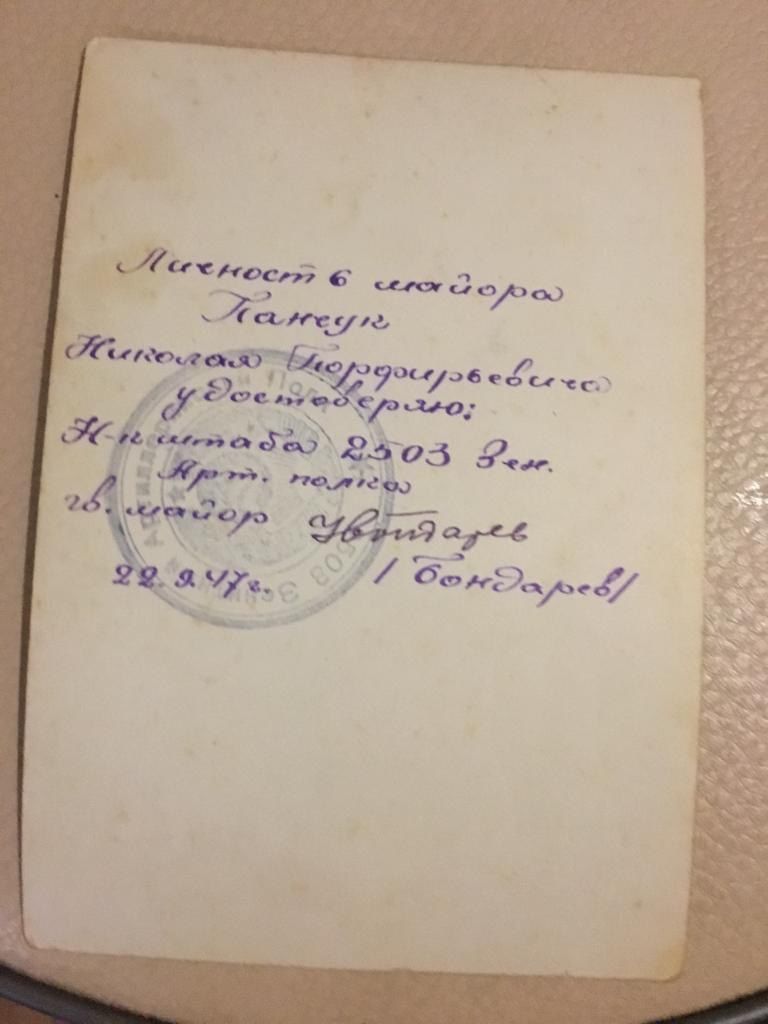 Личность майора
Панчук
Николая Порфирьевича
удостоверяю:
Н-к штаба 2503 Зен.
Арт. полка
гв. майор
22.9.47г. /Бондарев/
2503 Зенитный Артиллерийский Полк